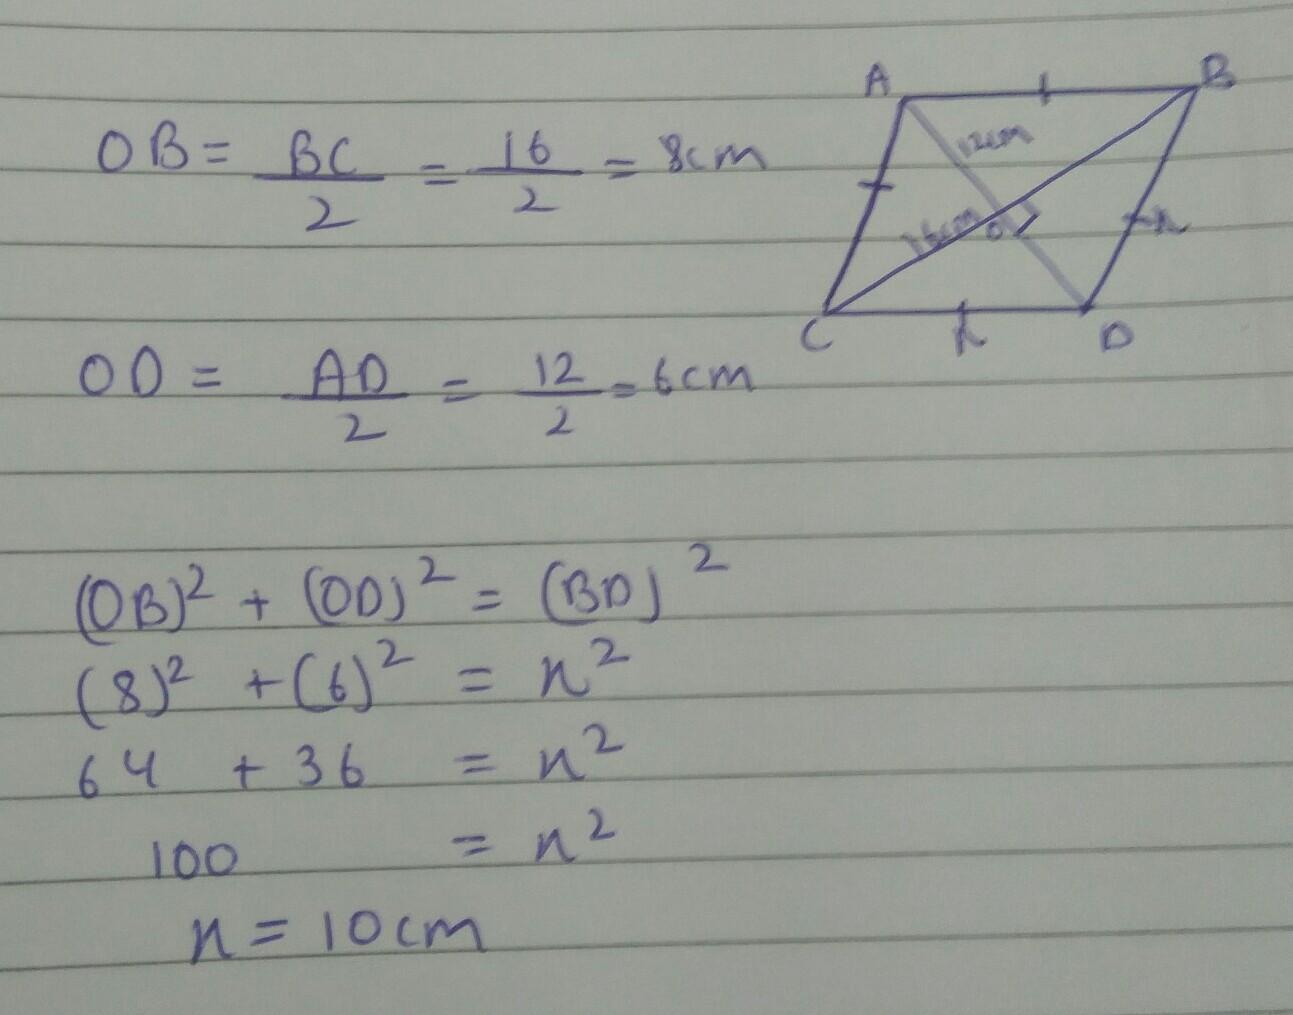 OB = BC/2 = 16/2 = 8cm
A
B
12cm
16cm
O
x
C
x
D
OD = AD/2 = 12/2 = 6cm
(OB)² + (OD)² = (BD)²
(8)² + (6)² = x²
64 + 36 = x²
100 = x²
x = 10cm